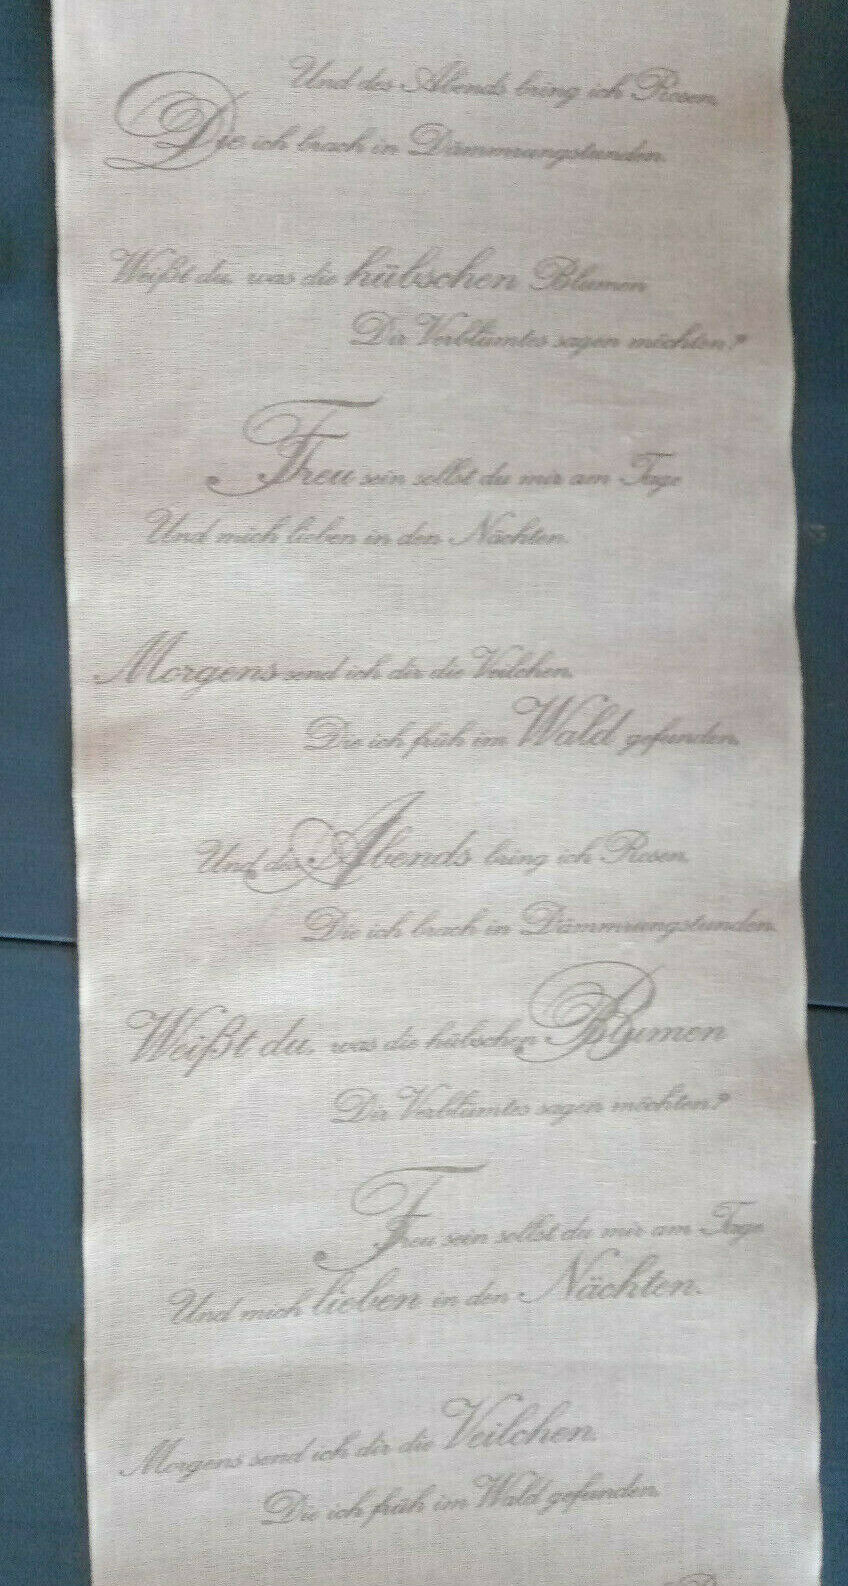 Und des Abends bring ich Rosen,
Die ich brach in Dämmrungstunden.
Weißt du, was die hübschen Blumen
Dir Verblümtes sagen möchten?
Treu sein sollst du mir am Tage
Und mich lieben in den Nächten.
Morgens send ich dir die Veilchen,
Die ich früh im Wald gefunden,
Und des Abends bring ich Rosen,
Die ich brach in Dämmrungstunden.
Weißt du, was die hübschen Blumen
Dir Verblümtes sagen möchten?
Treu sein sollst du mir am Tage
Und mich lieben in den Nächten.
Morgens send ich dir die Veilchen,
Die ich früh im Wald gefunden,